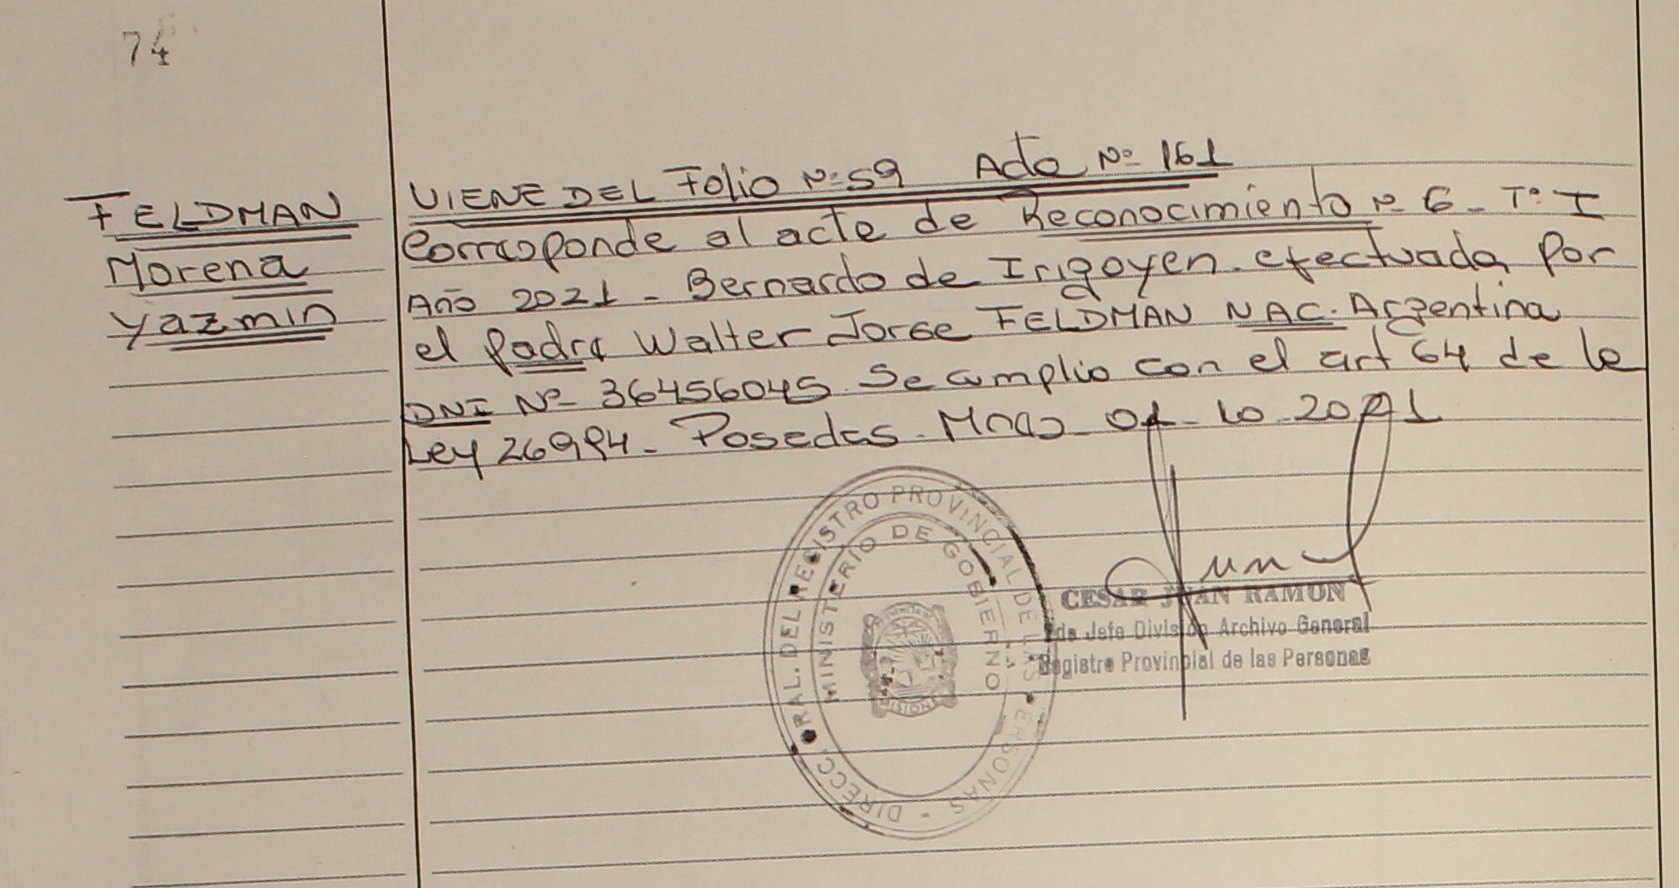 74
FELDMAN
Morena
Yazmin
VIENE DEL Folio Nº 59 Acta Nº 161
Corresponde al acta de Reconocimiento Nº 6 - Tº I
Año 2021 - Bernardo de Irigoyen - efectuada por
el padre Walter Jorge FELDMAN NAC. Argentina
DNI Nº 36456045. Se cumplio con el art 64 de la
Ley 26994 - Posadas - Mnes 01 - 10 - 2021
DIRECC. GRAL. DEL REGISTRO PROVINCIAL DE LAS PERSONAS
MINISTERIO DE GOBIERNO
MISIONES
CESAR JUAN RAMON
2da Jefe División Archivo General
Registro Provincial de las Personas